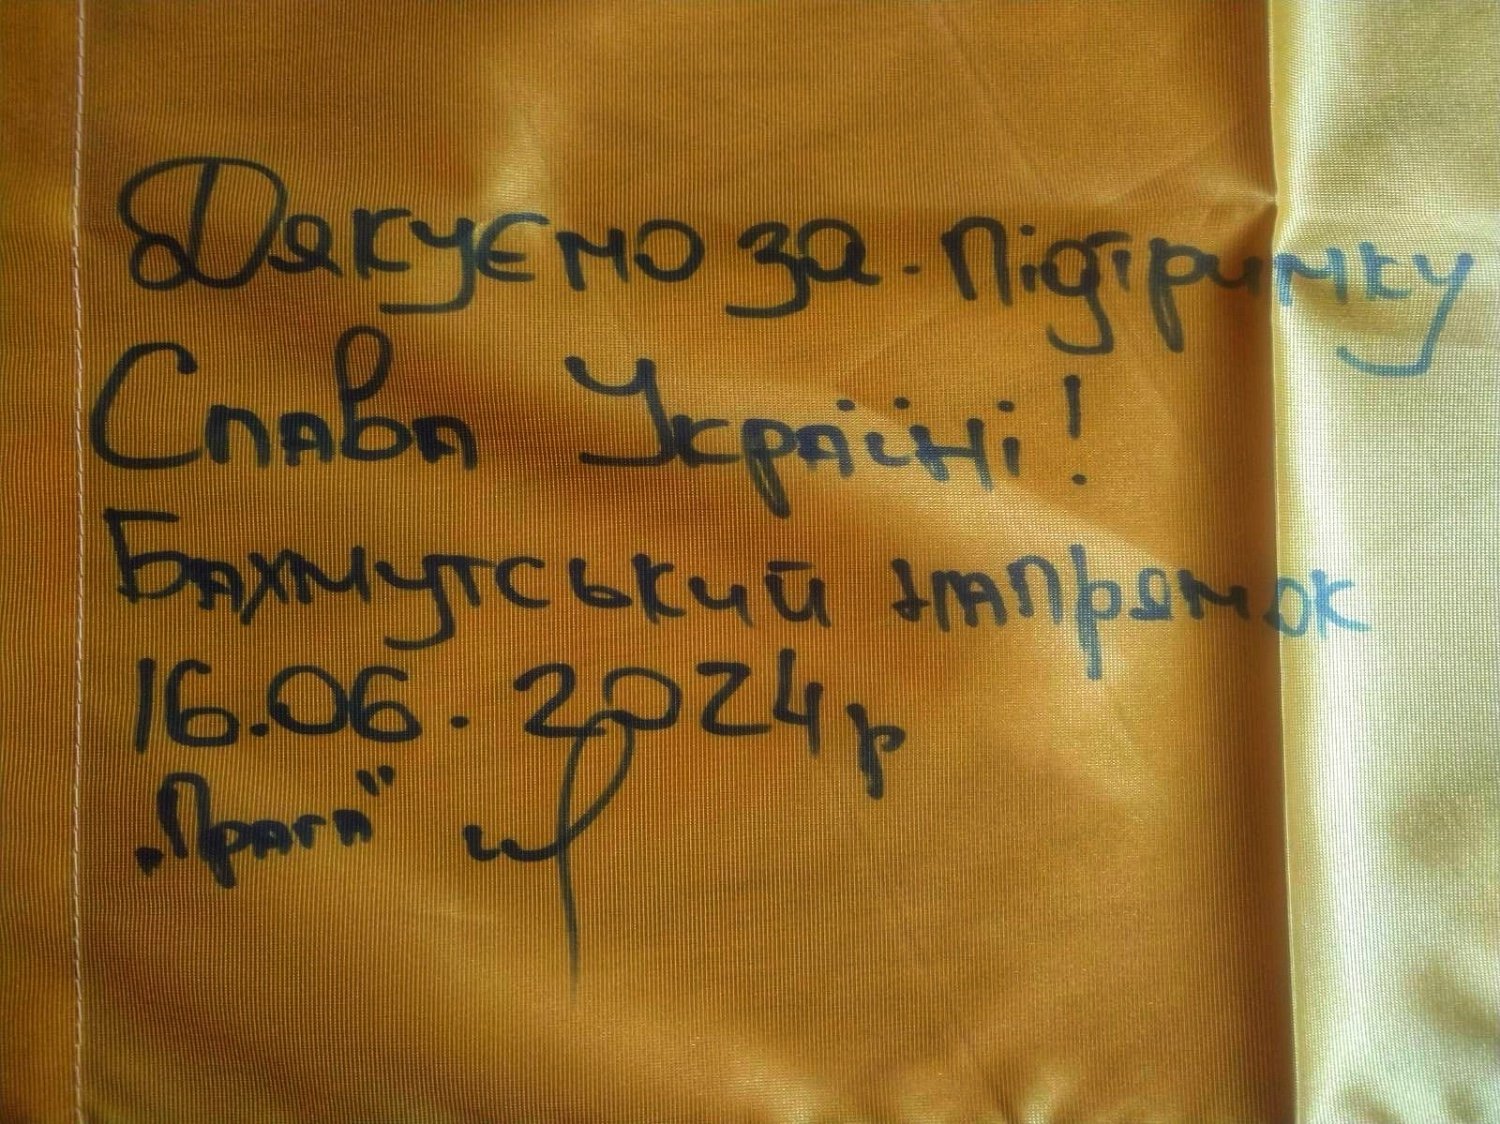 Дякуємо за підтримку
Слава Україні!
Бахмутський напрямок
16.06.2024р
„Прага"